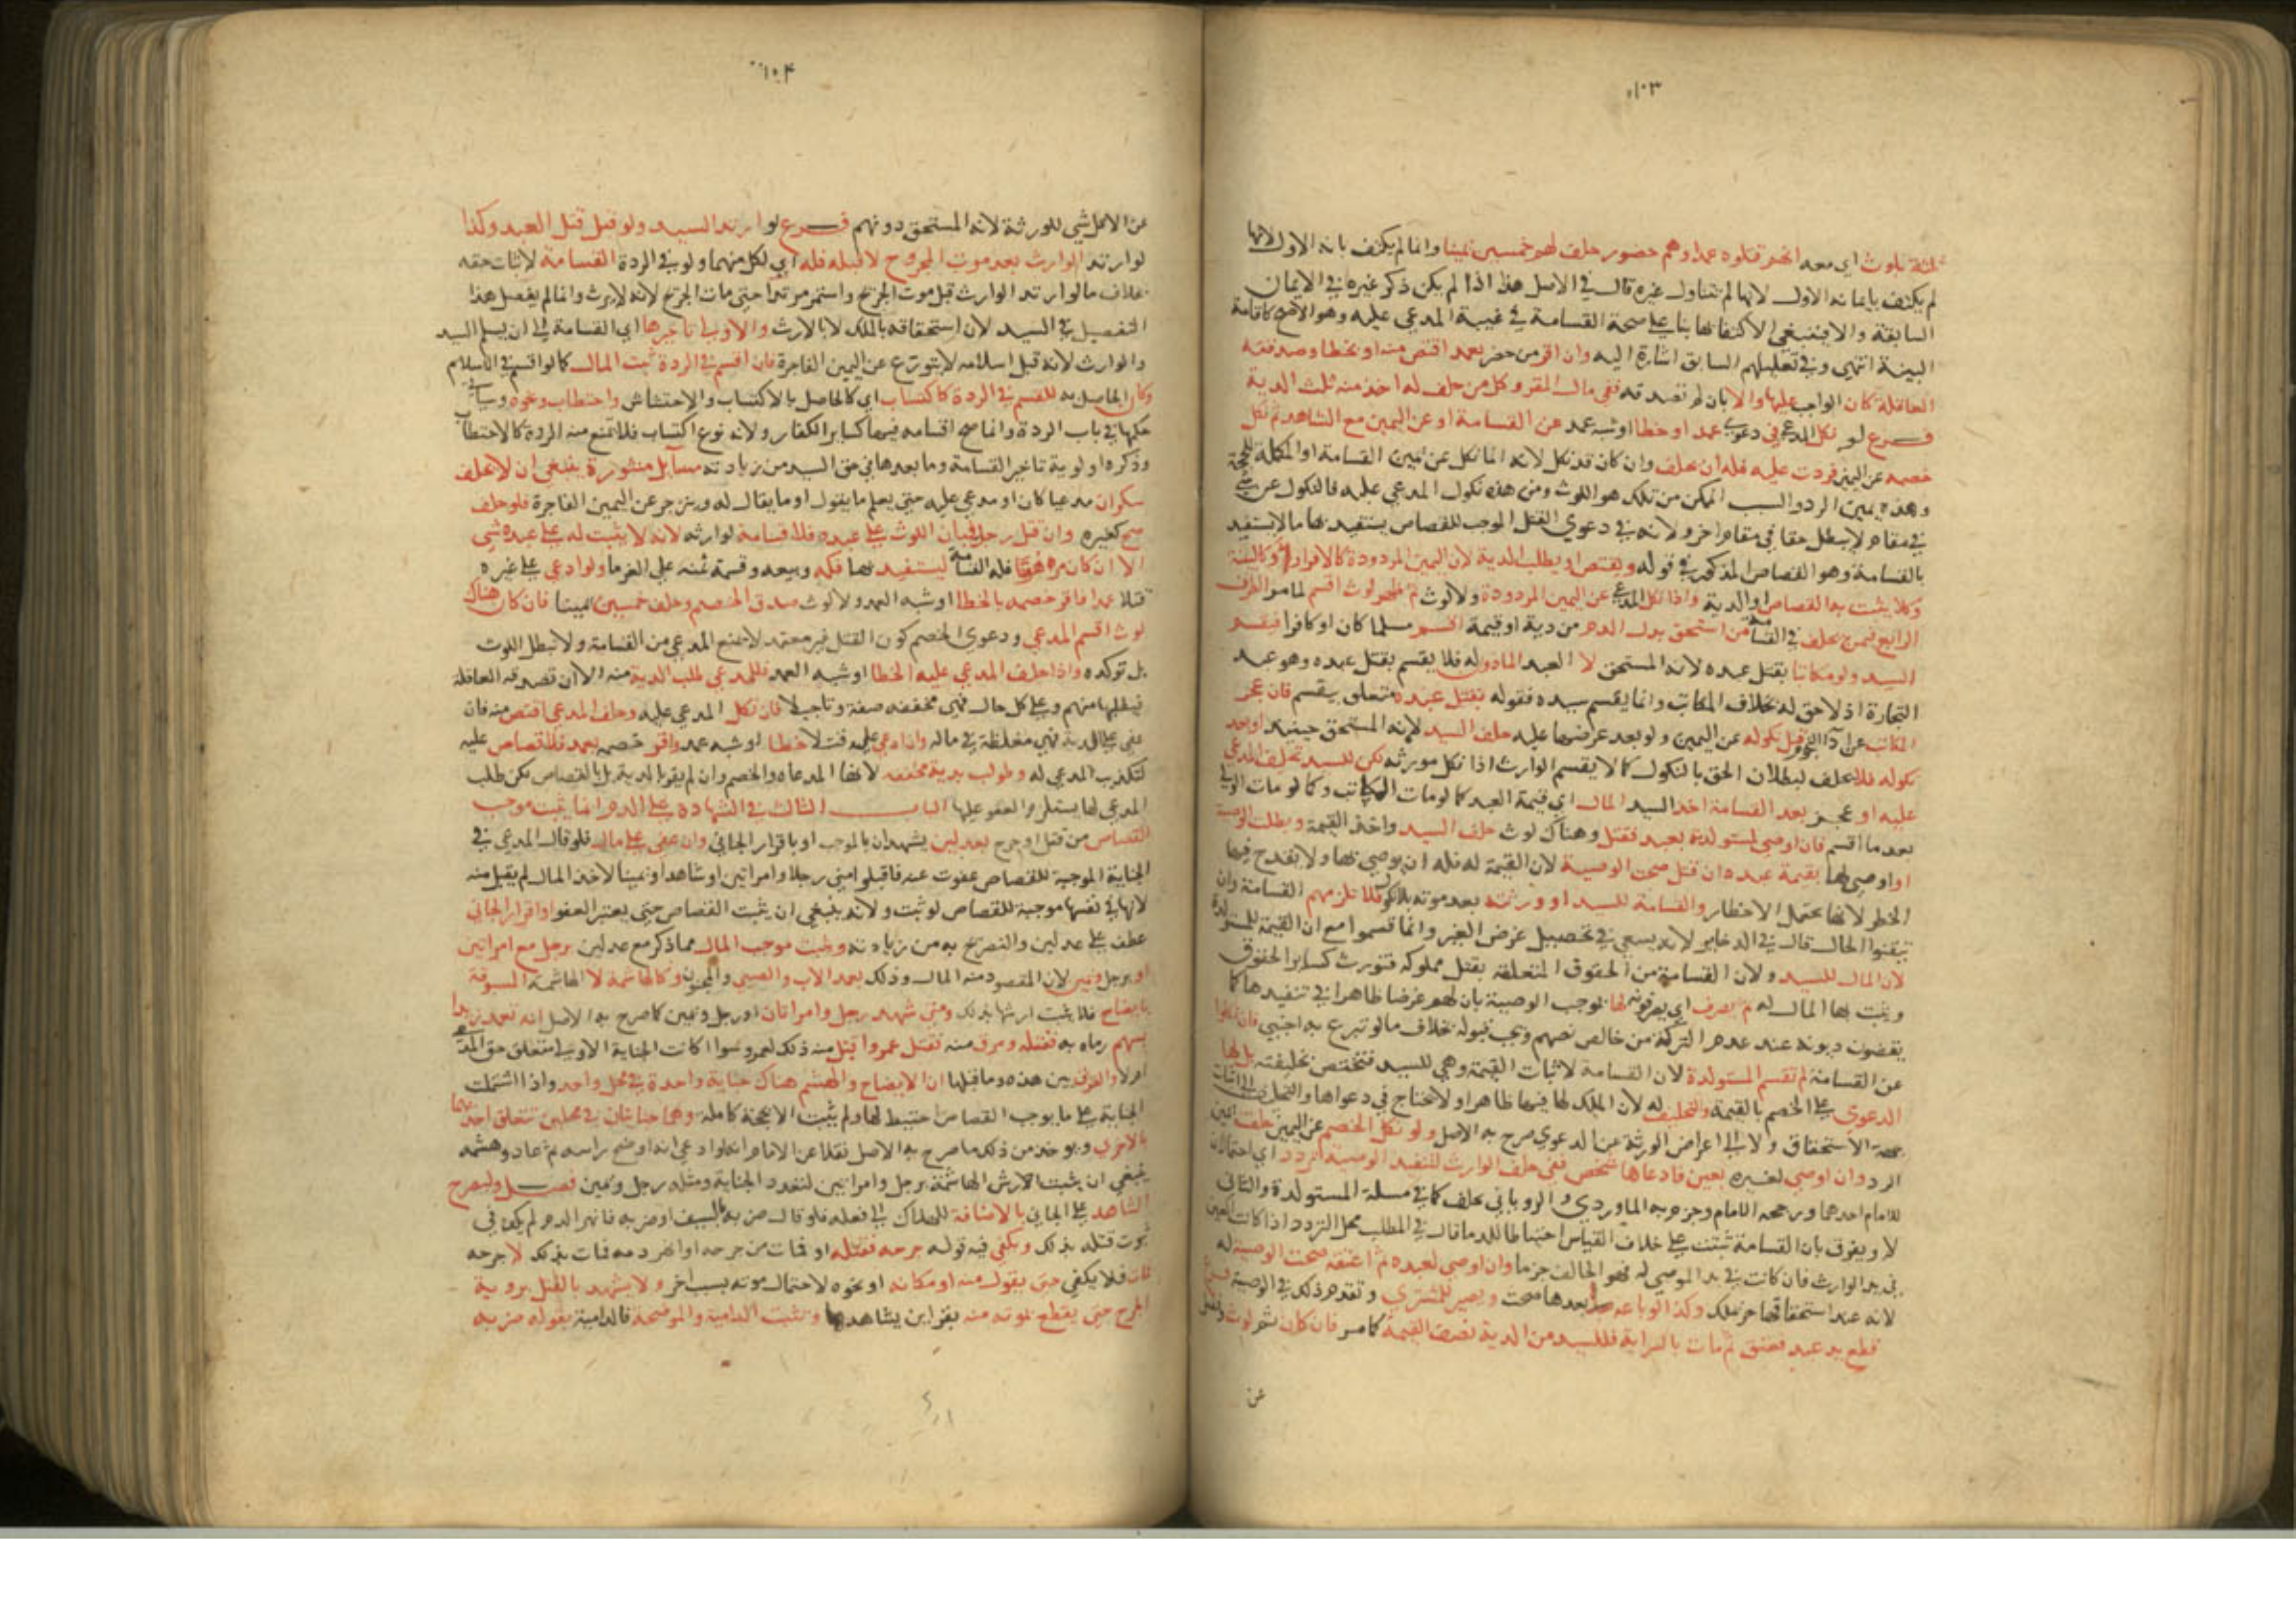 ١٠٣
ثلثة بلوث اي معه انهم قتلوه عمدا وهم حضور حلف لهم خمسين يمينا وانما لم يكتف بانه الاول لانها
لم يكتف بايمانه الاول لانها لم تتناول غيره قال في الاصل هذا اذا لم يكن ذكر غيره في الايمان
السابقة والا فينبغي الاكتفا بها بنا على صحة القسامة في غيبة المدعي عليه وهو الاصح كاقامة
البينة انتهى وفي تعليلهم السابق اشارة اليه وان اقر من حضر بعمد اقتص منه او بخطا وصدقته
العاقلة كان الواجب عليها والا بان لم تصدقه ففي مال المقر وكل من حلف له اخذ منه ثلث الدية
فرع لو نكل المدعي في دعوى عمد او خطا او شبه عمد عن القسامة او عن اليمين مع الشاهد ثم نكل
خصمه عن اليمين فردت عليه فله ان يحلف وان كان قد نكل لانه انما نكل عن يمين القسامة او المكملة للحجة
وهذه يمين الرد والسبب الممكن من تلك هو اللوث ومن هذه نكول المدعي عليه فالنكول عن
في مقام لا يبطل حقا في مقام اخر ولانه في دعوى القتل الموجب للقصاص يستفيد بها ما لا يستفيد
بالقسامة وهو القصاص المذكور في قوله ويقتص او يطلب الدية لان اليمين المردودة كالاقرار او كالبينة
وكلا يثبت به القصاص او الدية واذا نكل المدعي عن اليمين المردودة ولا لوث ثم ظهر لوث اقسم لما مر الطرف
الرابع فيمن يحلف في القسامة من استحق بدل الدم من دية او قيمة اقسم مسلما كان او كافرا فيقسم
السيد ولو مكاتبا بقتل عبده لانه المستحق لا العبد الماذون له فلا يقسم بقتل عبده وهو عبد
التجارة اذ لا حق له بخلاف المكاتب وانما يقسم سيده فقوله بقتل عبده متعلق بيقسم فان عجز
المكاتب عن ادا النجوم قبل نكوله عن اليمين ولو بعد عرضها عليه حلف السيد لانه المستحق حينئذ او بعد
نكوله فلا يحلف لبطلان الحق بالنكول كما لا يقسم الوارث اذا نكل مورثه لكن للسيد تحليف المدعي
عليه او عجز بعد القسامة اخذ السيد المال اي قيمة العبد كما لو مات المكاتب وكما لو مات الولي
بعد ما اقسم فان اوصى لمستولدة بعبد فقتل وهناك لوث حلف السيد واخذ القيمة وبطلت الوصية
او اوصى لها بقيمة عبده ان قتل صحت الوصية لان القيمة له فله ان يوصي بها ولا يقدح فيها
الخطر لانها تحتمل الاخطار والقسامة للسيد او ورثته بعد موته فلا تلزمهم القسامة وان
تيقنوا الحال قال في الذخاير لانه يسعى في تحصيل غرض الغير وانما قسموا مع ان القيمة للمستولدة
لان المال للسيد ولان القسامة من الحقوق المتعلقة بقتل مملوكه فتورث كساير الحقوق
ويثبت بها المال له ثم يصرف اي يصرفونها لها بموجب الوصية بان لهم غرضا ظاهرا في تنفيذها كما
يقضون ديونه عند عدم التركة من خالص نصيبهم ويجب قبوله بخلاف ما لو تبرع به اجنبي فان نكلوا
عن القسامة لم تقسم المستولدة لان القسامة لاثبات القيمة وهي للسيد فتختص بخليفته بل لها
الدعوى على الخصم بالقيمة والتحليف له لان الملك لها فيها ظاهرا ولا تحتاج في دعواها والتحليف الى اثبات
جهة الاستحقاق ولا الى اعراض الورثة عن الدعوى صرح به الاصل ولو نكل الخصم عن اليمين حلفت يمين
الرد وان اوصى لغيره بعين فادعاها شخص ففي حلف الوارث لتنفيذ الوصية تردد اي احتمالان
للامام احدهما ورجحه الامام وجزم به الماوردي والروياني يحلف كما في مسئلة المستولدة والثاني
لا ويفرق بان القسامة تثبت على خلاف القياس احتياطا للدما قال في المطلب محل التردد اذا كانت العين
في يد الوارث فان كانت في يد الموصى له فهو الحالف جزما وان اوصى لعبده ثم اعتقه صحت الوصية له
لانه عند استحقاقها حر يملك وكذا لو باعه بعدها صحت ويصير للمشتري وتقدم ذلك في الوصية فرع
قطع يد عبد فعتق ثم مات بالسراية فللسيد من الدية نصف القيمة كما مر فان كان ثم لوث
من
١٠٤
عن الاكل شي للورثة لانه المستحق دونهم فرع لو ارتد السيد ولو قبل قتل العبد وكذا
لو ارتد الوارث بعد موت المجروح لا قبله فله اي لكل منهما ولو في الردة القسامة لاثبات حقه
بخلاف ما لو ارتد الوارث قبل موت الجريح واستمر مرتدا حتى مات الجريح لانه لا يرث وانما لم يفصل هذا
التفصيل في السيد لان استحقاقه بالملك لا بالارث والاولى تاخيرها اي القسامة الى ان يسلم السيد
والوارث لانه قبل اسلامه لا يتورع عن اليمين الفاجرة فان اقسم في الردة ثبت المال كما لو اقسم في الاسلام
وكان الحاصل به للقسم في الردة كاكتساب اي كالحاصل بالاكتساب والاحتشاش واحتطاب ونحوه وسياتي
حكمها في باب الردة وانما صح اقسامه فيها كساير الكفار ولانه نوع اكتساب فلا تمنع منه الردة كالاحتطاب
وذكره اولوية تاخير القسامة وما بعدها في حق السيد من زيادته مسايل منثورة ينبغي ان لا يحلف
سكران مدعيا كان او مدعى عليه حتى يعلم ما يقول او ما يقال له وينزجر عن اليمين الفاجرة فلو حلف
صح كغيره وان قتل رجل فبان اللوث على عبده فلا قسامة لوارثه لانه لا يثبت له على عبده شي
الا ان كان مرهونا فله القسامة ليستفيد بها فكه وبيعه وقسمة ثمنه على الغرما ولو ادعى على غيره
قتلا عمدا فاقر خصمه بالخطا او شبه العمد ولا لوث صدق الخصم وحلف خمسين يمينا فان كان هناك
لوث اقسم المدعي ودعوى الخصم كون القتل غير معتمد لا تمنع المدعي من القسامة ولا تبطل اللوث
بل توكده واذا حلف المدعي عليه الخطا او شبه العمد فللمدعي طلب الدية منه الا ان تصدقه العاقلة
فيطلبها منهم وعلى كل حال فهي مخففة صفة وتاجيلا فان نكل المدعي عليه وحلف المدعي اقتص منه فان
عفي على الدية فهي مغلظة في ماله وان ادعى عليه قتلا خطا او شبه عمد واقر خصمه بعمد فلا قصاص عليه
لتكذيب المدعي له وطولب بدية مخففة لانها المدعاة والخصم وان لم يقر بالدية بل بالقصاص لكن طلب
المدعي لها يستلزم العفو عليها الباب الثالث في الشهادة على الدم انما يثبت موجب
القصاص من قتل او جرح بعدلين يشهدان بالموجب او باقرار الجاني وان عفى على مال فلو قال المدعي في
الجناية الموجبة للقصاص عفوت عنه فاقبلوا مني رجلا وامراتين او شاهدا ويمينا لاخذ المال لم يقبل منه
لانها في نفسها موجبة للقصاص لو ثبت ولانه ينبغي ان يثبت القصاص حتى يعتبر العفو او اقرار الجاني
عطف على عدلين والتصريح به من زيادته ويثبت موجب المال مما ذكر مع عدلين برجل مع امراتين
او برجل ويمين لان المقصود منه المال وذلك بعمد الاب والصبي والمجنون وكالهاشمة لا الهاشمة المسبوقة
بايضاح فلا يثبت ارشها بذلك ومتى شهد رجل وامراتان او رجل ويمين كما صرح به الاصل انه تعمد زيدا
بسهم رماه به فقتله ومرق منه فقتل عمروا قبل منه ذلك لعمرو سوا كانت الجناية الاولى متعلق حق المدعي
ام لا والفرق بين هذه وما قبلها ان الايضاح والهشم هناك جناية واحدة في محل واحد واذا اشتملت
الجناية على ما يوجب القصاص احتيط لها ولم يثبت الا بحجة كاملة وهما جنايتان في محلين تتعلق احدهما
بالاخرى ويوخذ من ذلك ما صرح به الاصل نقلا عن الامام انه لو ادعى انه اوضح راسه ثم عاد وهشمه
ينبغي ان يثبت ارش الهاشمة برجل وامراتين لتعدد الجناية ومثله رجل ويمين فصل وليصرح
الشاهد على الجاني بالاضافة للهلاك الى فعله فلو قال ضربه بالسيف او ضربه فانهر الدم لم يكف في
ثبوت قتله بذلك ويكفي فيه قوله جرحه فقتله او فمات من جرحه او انهر دمه فمات بذلك لا جرحه
فمات فلا يكفي حتى يقول منه او مكانه او نحوه لاحتمال موته بسبب اخر ولا يشهد بالقتل بروية
الجرح حتى يقطع بموته منه بقراين يشاهدها وتثبت الدامية والموضحة فالدامية بقوله ضربه